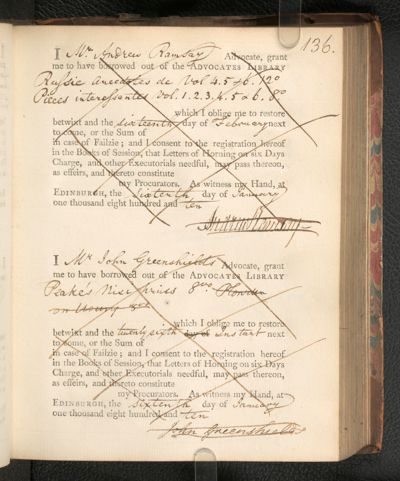 136.
I Mr Andrew Ramsay Advocate, grant
me to have borrowed out of the ADVOCATES LIBRARY
Russie anecdotes de Vol 4.5 & 6. 12o
Pieces interessantes Vol. 1.2.3.4.5 & 6. 8o
which I oblige me to restore
betwixt and the sixteenth day of February next
to come, or the Sum of
in case of Failzie; and I consent to the registration hereof
in the Books of Session, that Letters of Horning on six Days
Charge, and other Executorials needful, may pass thereon,
as effeirs, and thereto constitute
my Procurators. As witness my Hand, at
EDINBURGH, the Sixteenth day of January
one thousand eight hundred and ten
I Mr John Greenshields Advocate, grant
me to have borrowed out of the ADVOCATES LIBRARY
Peake's Nisi prius 8vo Plowden
on Usury 8vo
which I oblige me to restore
betwixt and the twenty sixth day of instant next
to come, or the Sum of
in case of Failzie; and I consent to the registration hereof
in the Books of Session, that Letters of Horning on six Days
Charge, and other Executorials needful, may pass thereon,
as effeirs, and thereto constitute
my Procurators. As witness my Hand, at
EDINBURGH, the sixteenth day of January
one thousand eight hundred and ten
John Greenshields